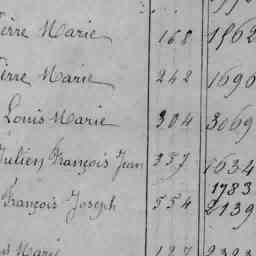 ierre Marie 168 1862
ierre Marie 242 1690
Louis Marie 304 3069
Julien François Jean 337 1634
1783
François Joseph 554 2139
Marie 127